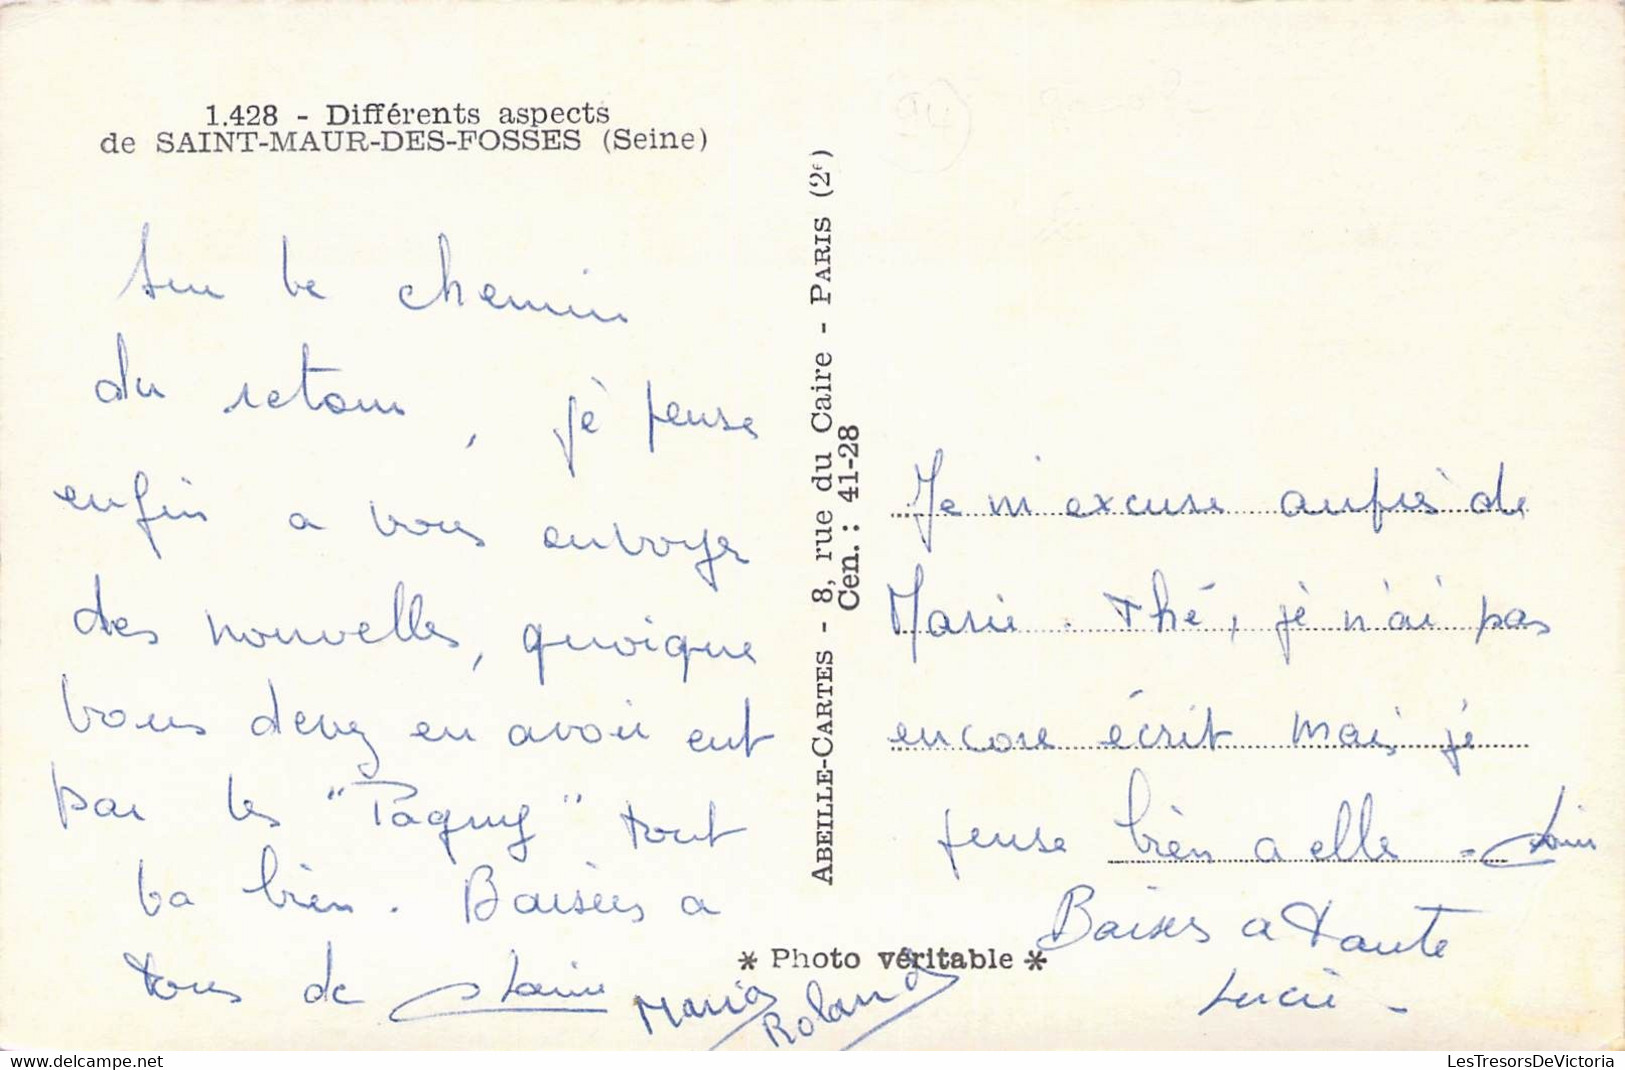 1.428 - Différents aspects
de SAINT-MAUR-DES-FOSSES (Seine)
(94)
Sur le chemin
du retour, je pense
enfin a vous envoyer
des nouvelles, quoique
vous devez en avoir eut
par les "Pagny" tout
va bien. Baisers a
tous de
Maria
Roland
ABEILLE-CARTES - 8, rue du Caire - PARIS (2e)
Cen. : 41-28
* Photo véritable *
Je m'excuse auprès de
Marie. Thé, je n'ai pas
encore écrit mais je
pense bien a elle -
Baisers a tante
Lucie -
LesTresorsDeVictoria